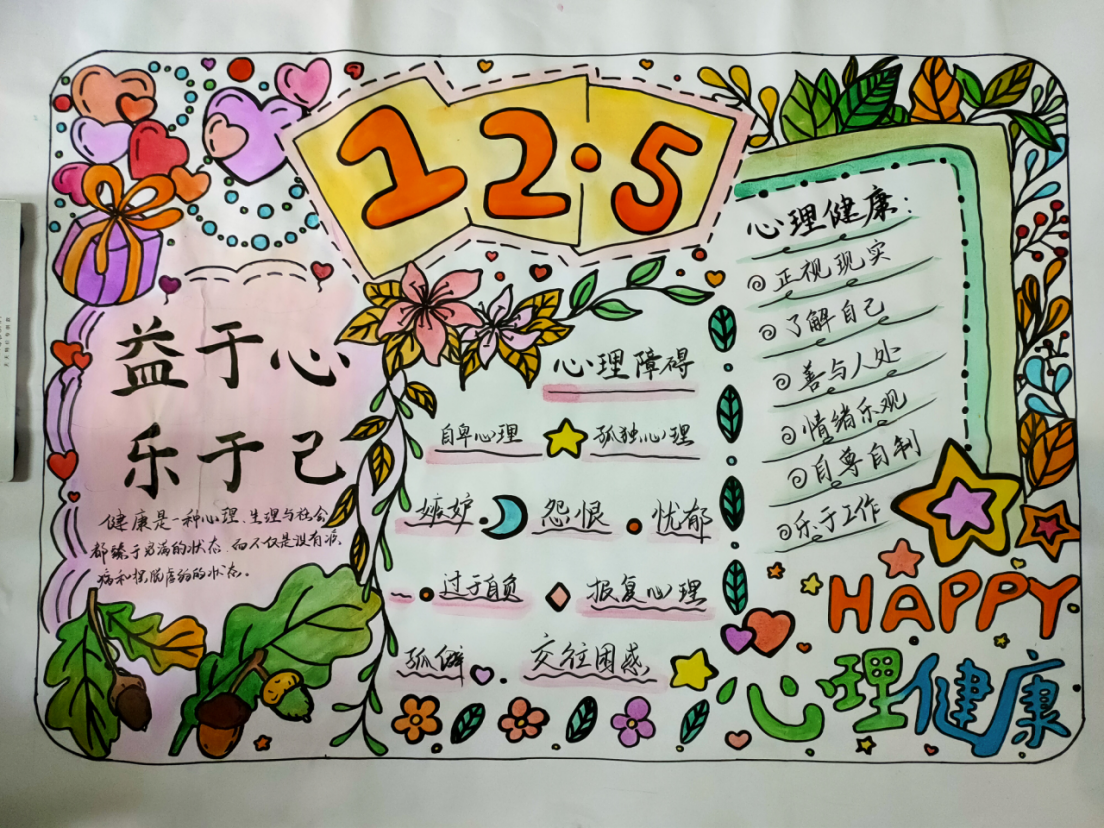 12.5
益于心
乐于己
健康是一种心理、生理与社会
都臻于完满的状态，而不仅是没有疾
病和摆脱虚弱的状态。
心理障碍
自卑心理 孤独心理
嫉妒 怨恨 忧郁
过于自负 报复心理
孤僻 交往困惑
心理健康：
正视现实
了解自己
善与人处
情绪乐观
自尊自制
乐于工作
HAPPY
心理健康